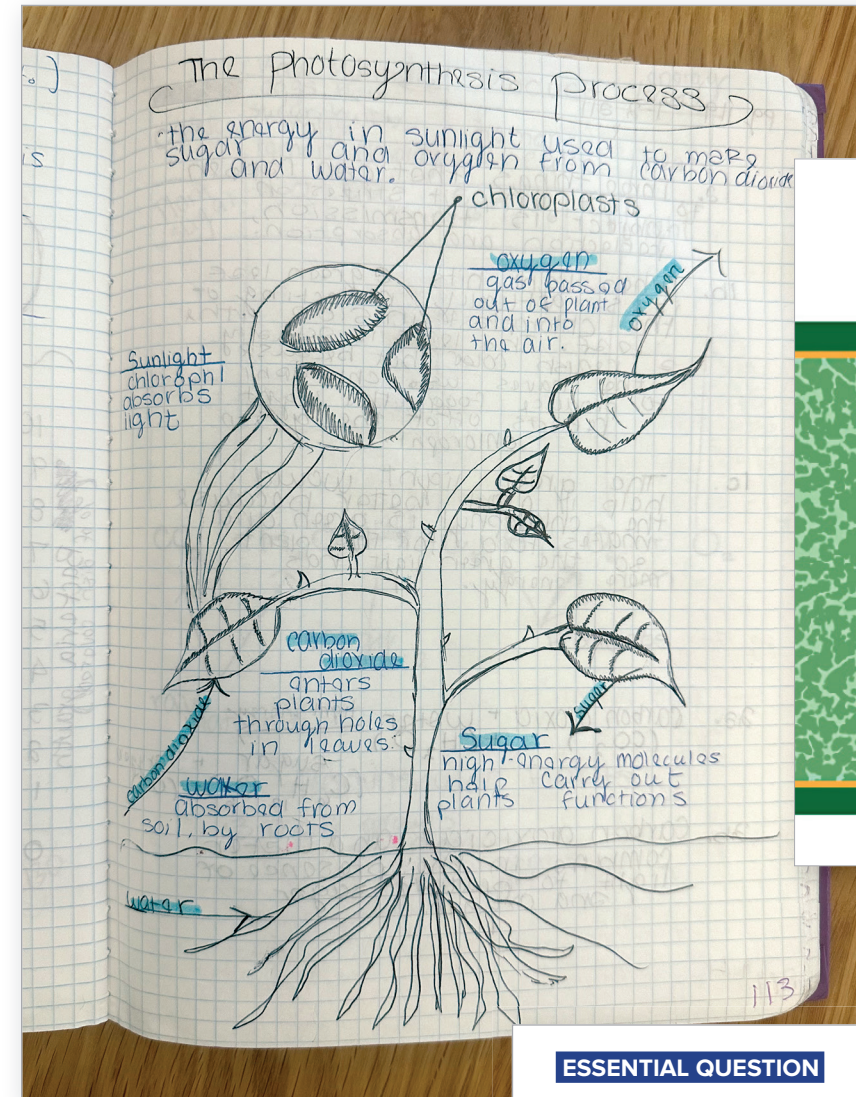 The Photosynthesis Process
the energy in sunlight used to make
sugar and oxygen from carbon dioxide
and water.
chloroplasts
oxygen
gas passed
out of plant
and into
the air.
oxygen
Sunlight
chlorophl
absorbs
light
carbon
dioxide
enters
plants
through holes
in leaves.
carbon dioxide
sugar
Sugar
high-energy molecules
help carry out
plants functions
water
absorbed from
soil, by roots
water
113
ESSENTIAL QUESTION